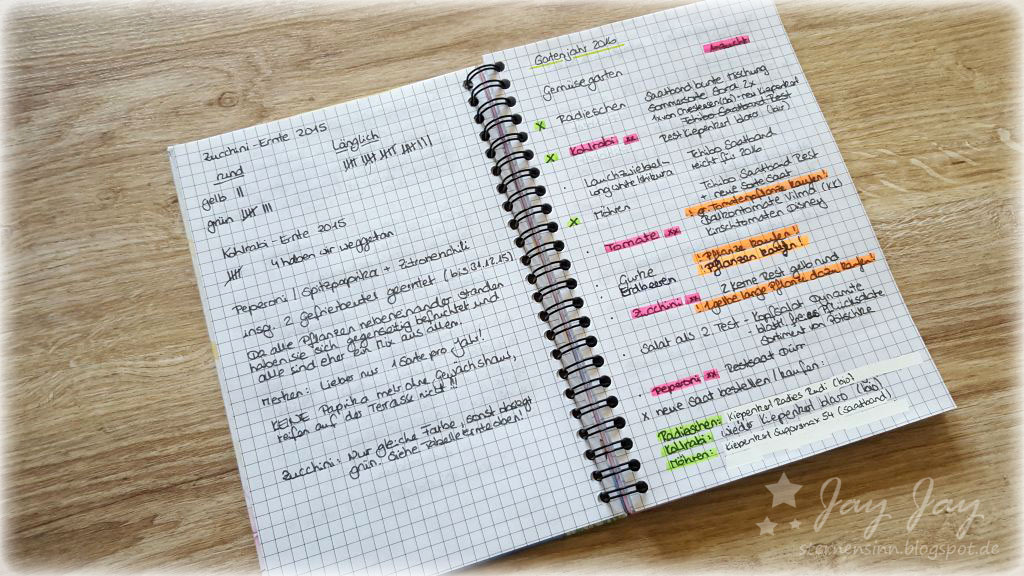 Zucchini - Ernte 2015
rund
Länglich
gelb II
grün IIII III
IIII IIII IIII IIII III
Kohlrabi - Ernte 2015
IIII 4 haben wir weggetan
Peperoni / Spitzpaprika + Zitronenchili
insg. 2 Gefrierbeutel geerntet (bis 31.12.15)
Da alle Pflanzen nebeneinander standen
haben sie sich gegenseitig befruchtet und
alle sind eher ein Mix aus allem.
Merken: Lieber nur 1 Sorte pro Jahr!
KEINE Paprika mehr ohne Gewächshaus,
reifen auf der Terasse nicht!!!
Zucchini: Nur gleiche Farbe, sonst
grün. Siehe Tabelle Ernte oben!
Gartenjahr 2016
Gemüsegarten
x Radieschen
Saatband bunte Mischung
Sommersorte 2x
neu Kiepenkerl
Tchibo Saatband Rest
x Kohlrabi xx
Rest Kiepenkerl Blaro (bio)
· Lauchzwiebel-
Tchibo Saatband
reicht für 2016
x Möhren
Tchibo Saatband Rest
+ neue Sorte Saat
· Tomate xx
! gr. Tomatenpflanze kaufen!
Balkontomate Vilma (KK)
Kirschtomaten Disney
· Gurke
! Pflanze kaufen!
Erdbeeren
! Pflanzen kaufen!
· Zucchini xx
2 Kerne Rest gelb rund
! 1 gelbe lange Pflanze dazu kaufen!
· Salat als 2 Test: - Kopfsalat Dynamite
- Pflücksalate
Sortiment von Pötschke
· Peperoni xx Restsaat Dürr
x neue Saat bestellen / kaufen:
Radieschen: Kiepenkerl Radies Rudi (bio)
Kohlrabi: wieder Kiepenkerl Blaro (bio)
Möhren: Kiepenkerl Sugarsnax 54 (Saatband)
Jay Jay
sternensinn.blogspot.de